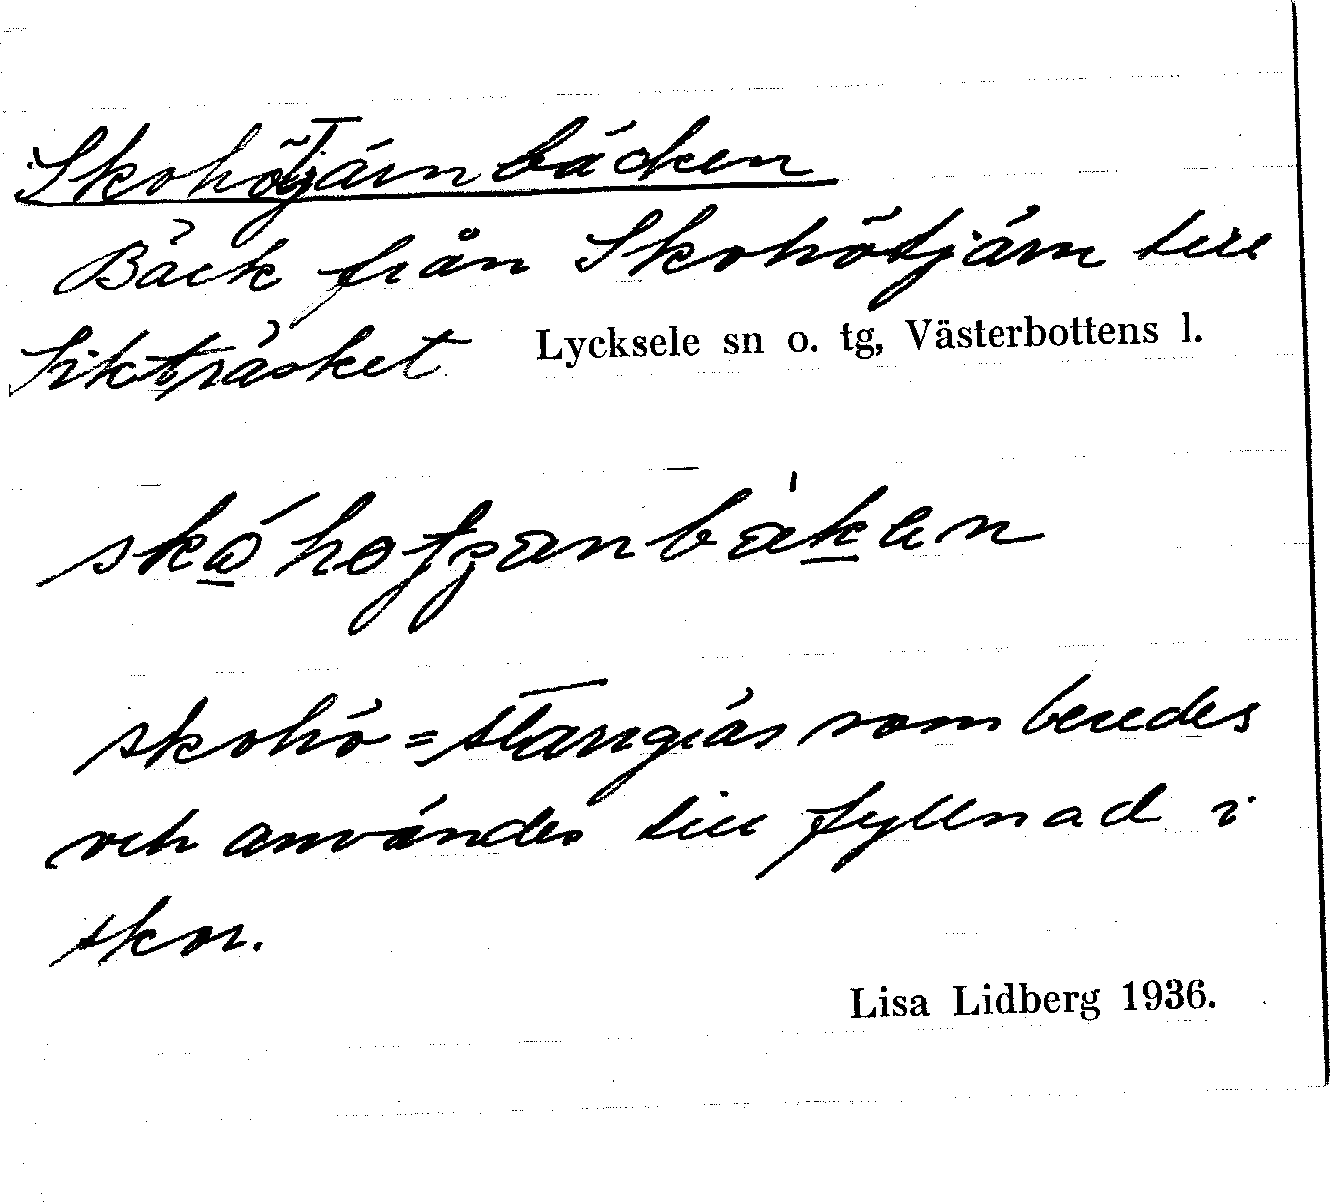 Skohötjärnbäcken
Bäck från Skohötjärn till
Sikträsket Lycksele sn o. tg, Västerbottens l.
skohö = starrgräs som beredes
och användes till fyllnad i
skor.
Lisa Lidberg 1936.